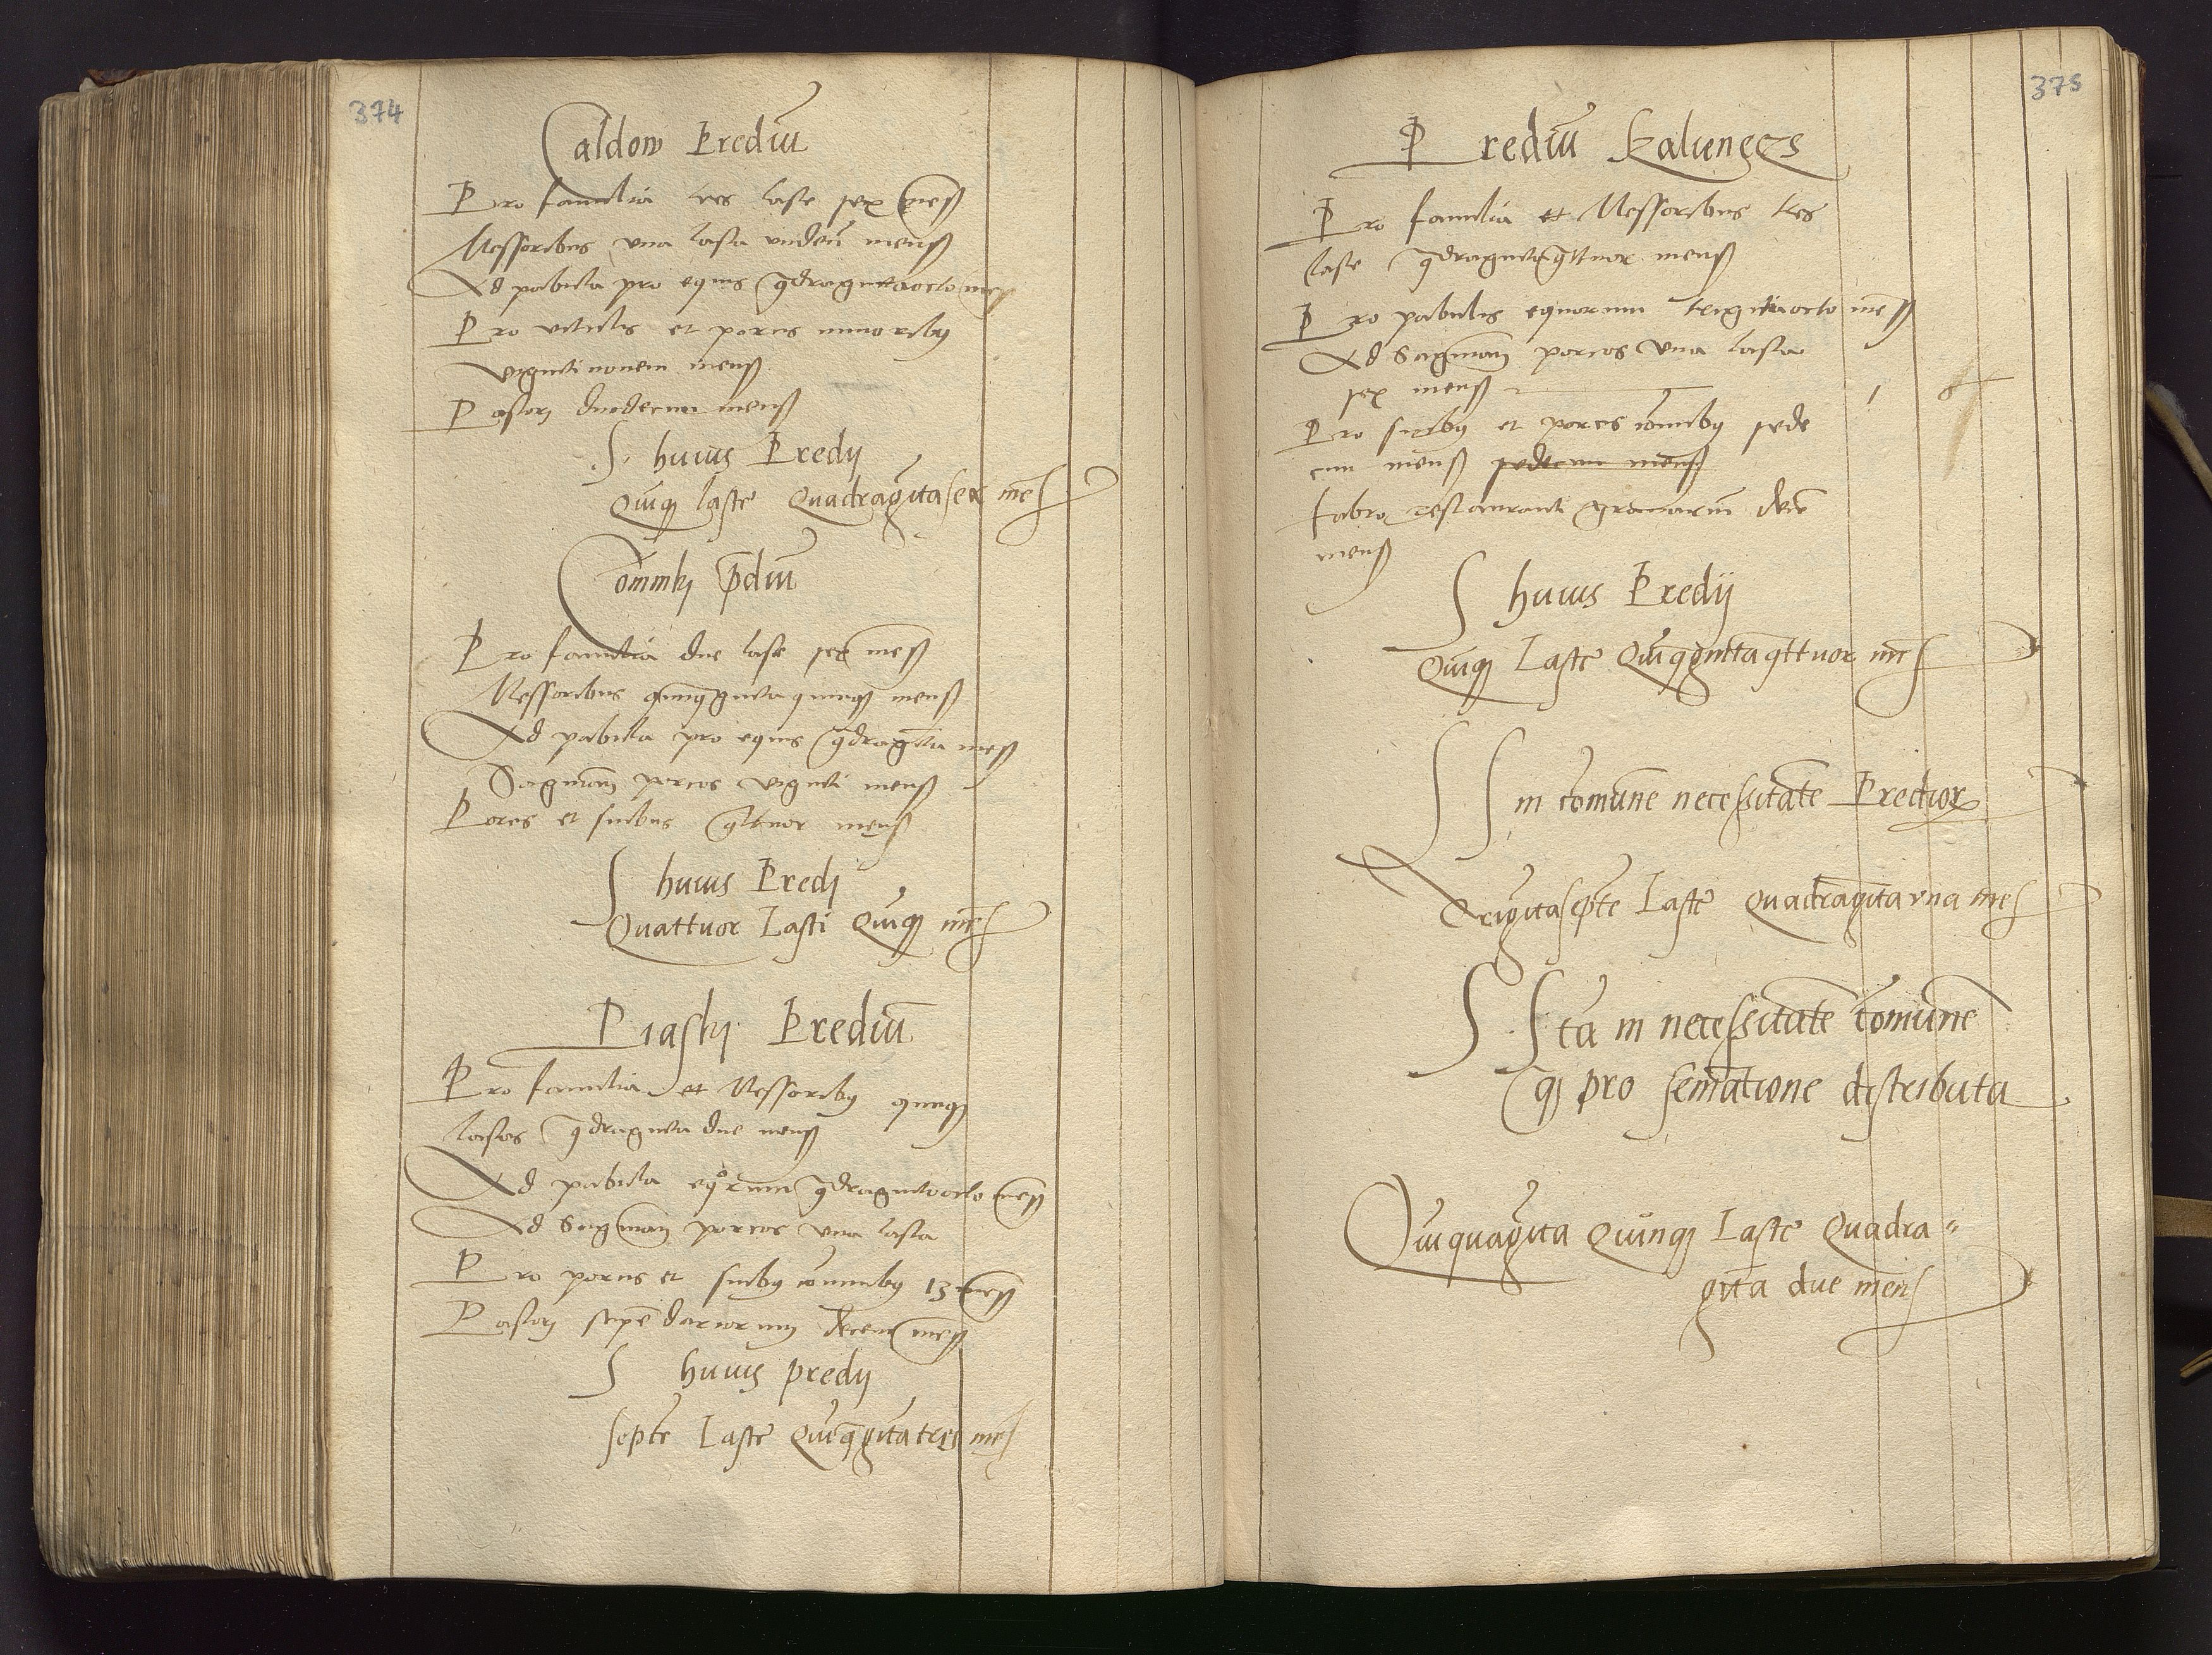 374
Caldow Prediū
Pro familia tres laste sex mens
Messoribus vna lasta vndecī mens
Ad pabula pro equis qdraginta octo mens
Pro vitulis et porcis minoribꝫ
viginti nouem mens
Pastorj duodecim mens
S huius Predij
Quīqꝫ laste Quadragītasex mēs
Commky p̄diū
Pro familia due laste sex mens
Messoribus quinqꝫginta quinqꝫ mens
Ad pabula pro equis qdragīta mens
Saginan porcos viginti mens
Porcis et suibus qttuor mens
S huius Predj
Quattuor Lasti Quīqꝫ mēs
Piasky Prediū
Pro familia et Messoribꝫ quinqꝫ
lastas qdraginta due mens
Ad pabula eqorum qdragintaocto mens
Ad Saginan porcos vna lasta
Pro porcis et suibꝫ cōmunibꝫ 13 mens
Pastorj stipēdariorum decem mens
S huius predij
septē Laste Quīqꝫgītatres mēs
375
Prediū Kaluncges
Pro familia et Messoribus tres
laste qdragintaqttuor mens
Pro pabulis equorum trigintaocto mēs
Ad Saginan porcos vna lasta
sex mens 1 6
Pro suibꝫ et porcis cōmunibꝫ sede
cim mens sedecim mens
fabro restauranti granariū decē
mens
S huius Predij
Quīqꝫ Laste Quīqꝫgintaqttuor mēs
S S in comunē necessitatē Predior
Trigītaseptē Laste Quadragīta vna mēs
S Sta in necessitatē comunē
qꝫ pro semīatione distributa
Quīquagīta Quīnqꝫ Laste Quadra〃
gīta due mens